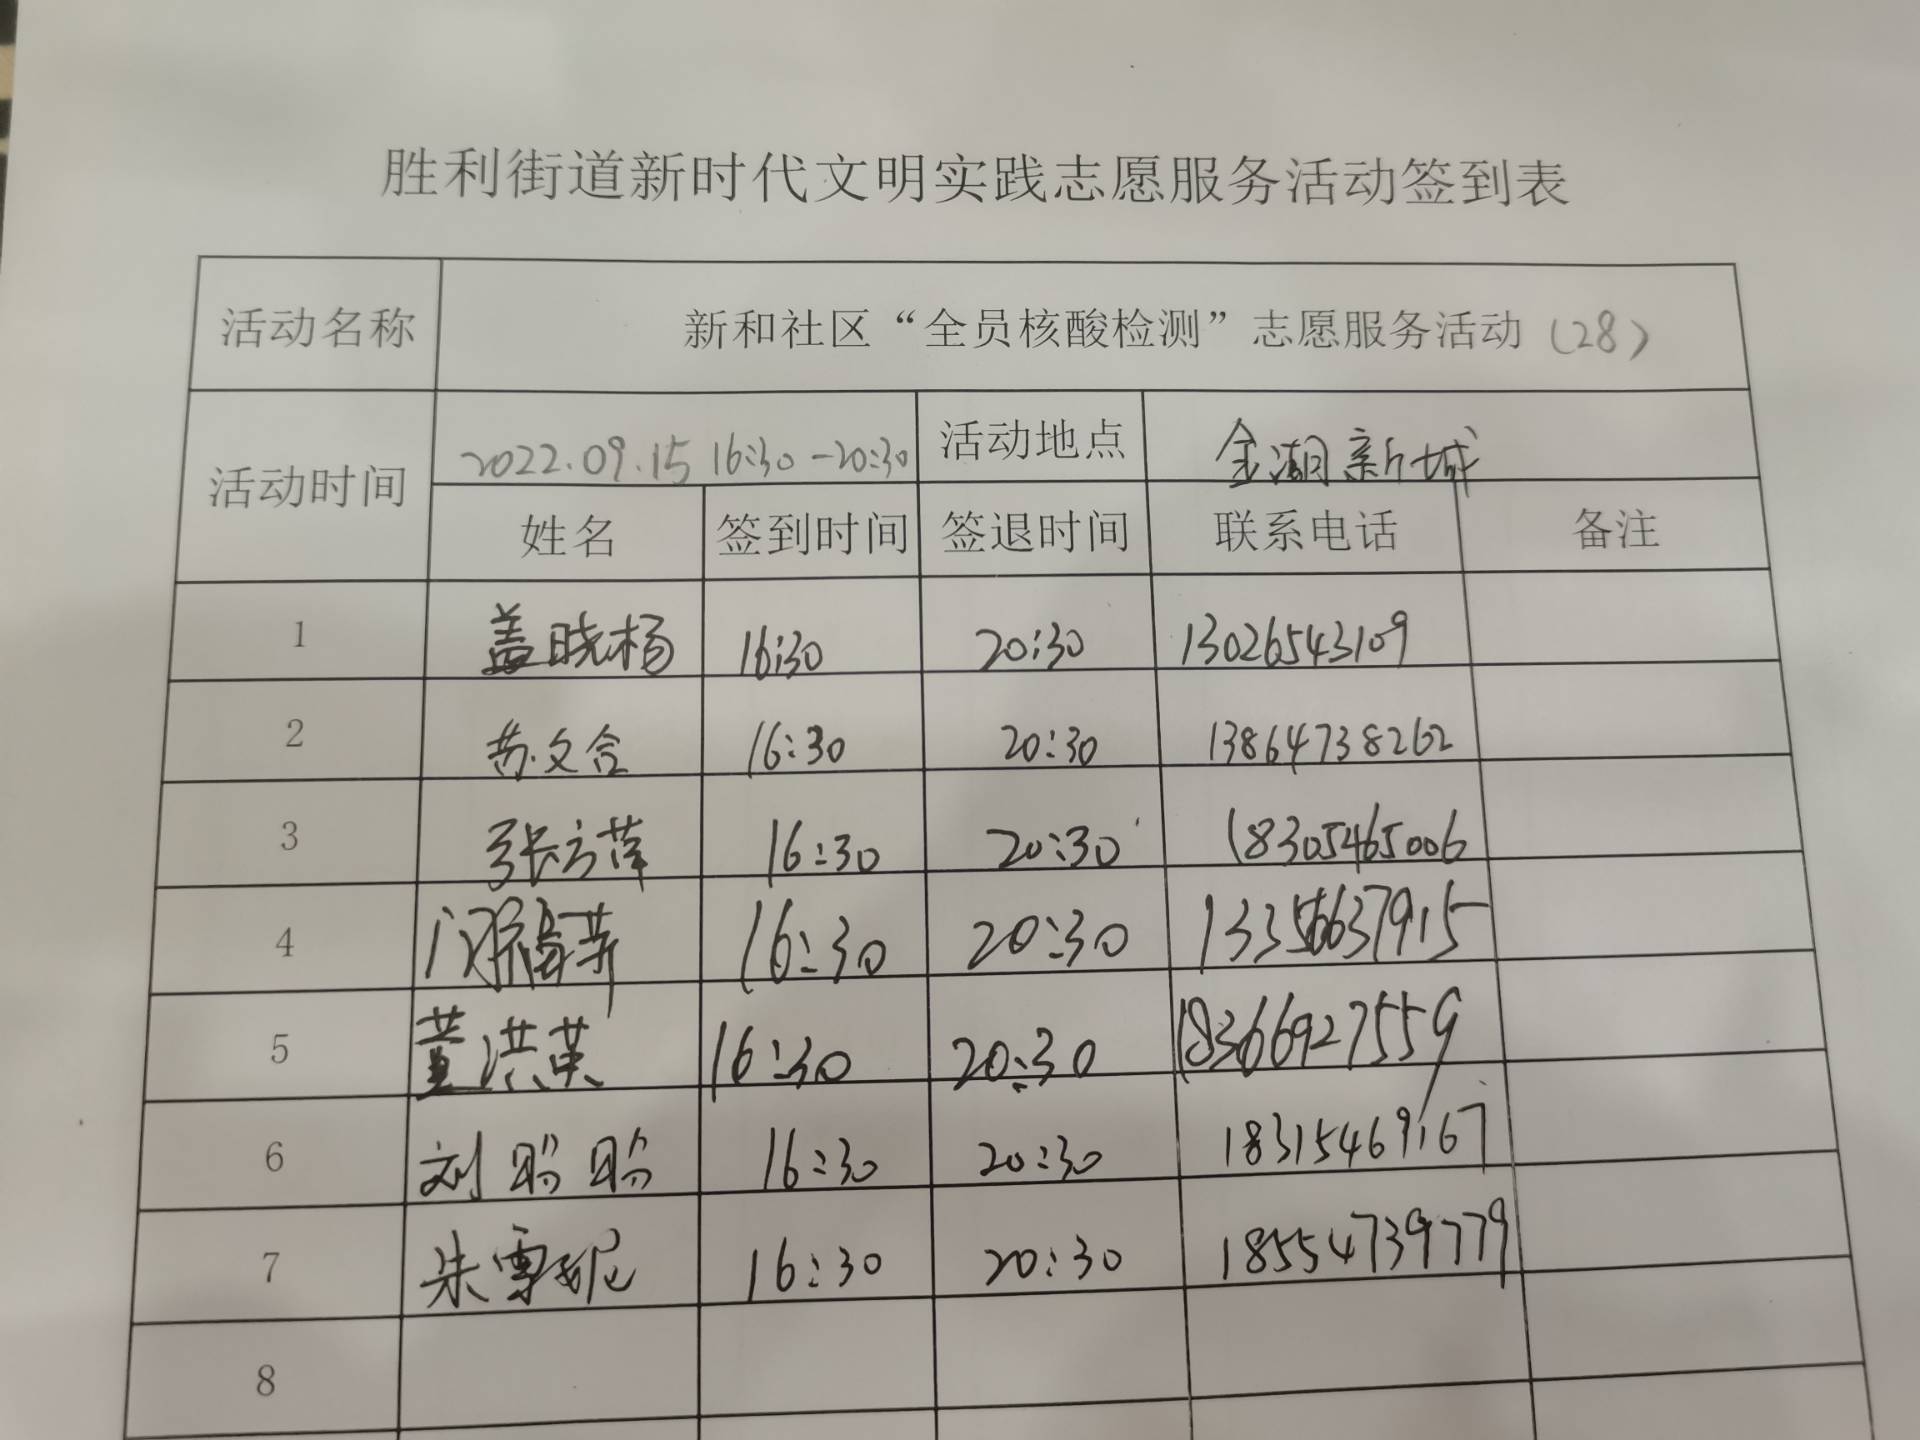 胜利街道新时代文明实践志愿服务活动签到表
活动名称 新和社区“全员核酸检测”志愿服务活动（28）
活动时间 2022.09.15 16:30-20:30 活动地点 金湖新城
姓名 签到时间 签退时间 联系电话 备注
1 盖晓杨 16:30 20:30 13026543109
2 苏文合 16:30 20:30 13864738262
3 张方萍 16:30 20:30 18305465006
4 16:30 20:30 13356637915
5 董洪英 16:30 20:30 18366927559
6 刘盼盼 16:30 20:30 18315469167
7 朱雪妮 16:30 20:30 18554739779
8